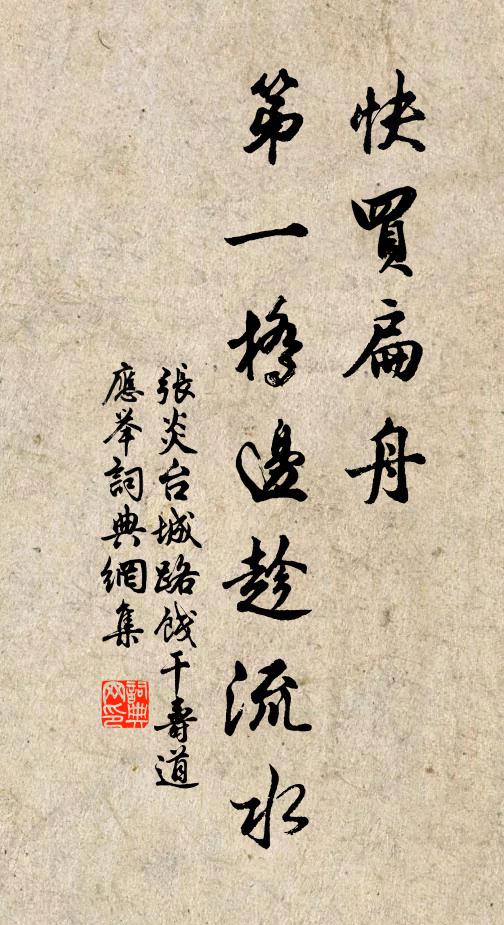 快買扁舟
第一橋邊趁流水
張炎台城路餞干壽道
應举詞典網集
詞典网印